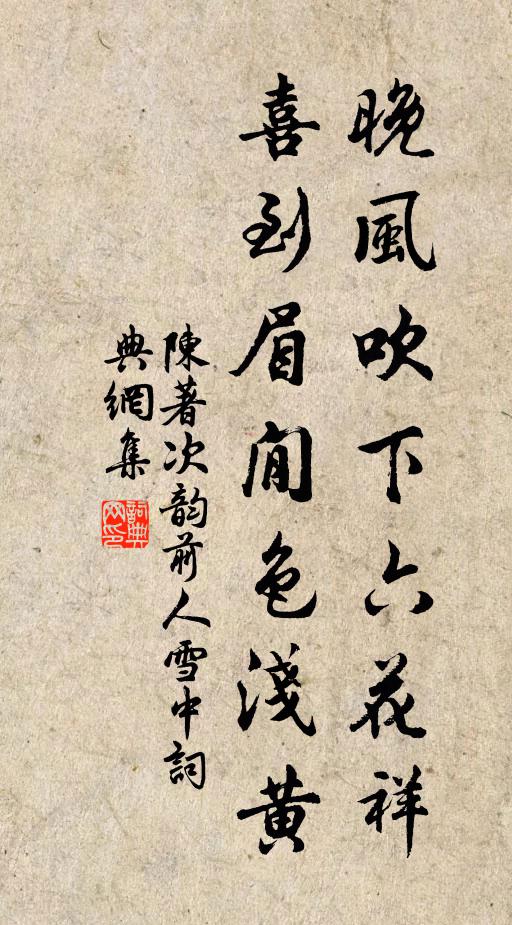 晚風吹下六花祥
喜到眉間色淺黄
陳著次韵前人雪中詞
典網集
詞典網印